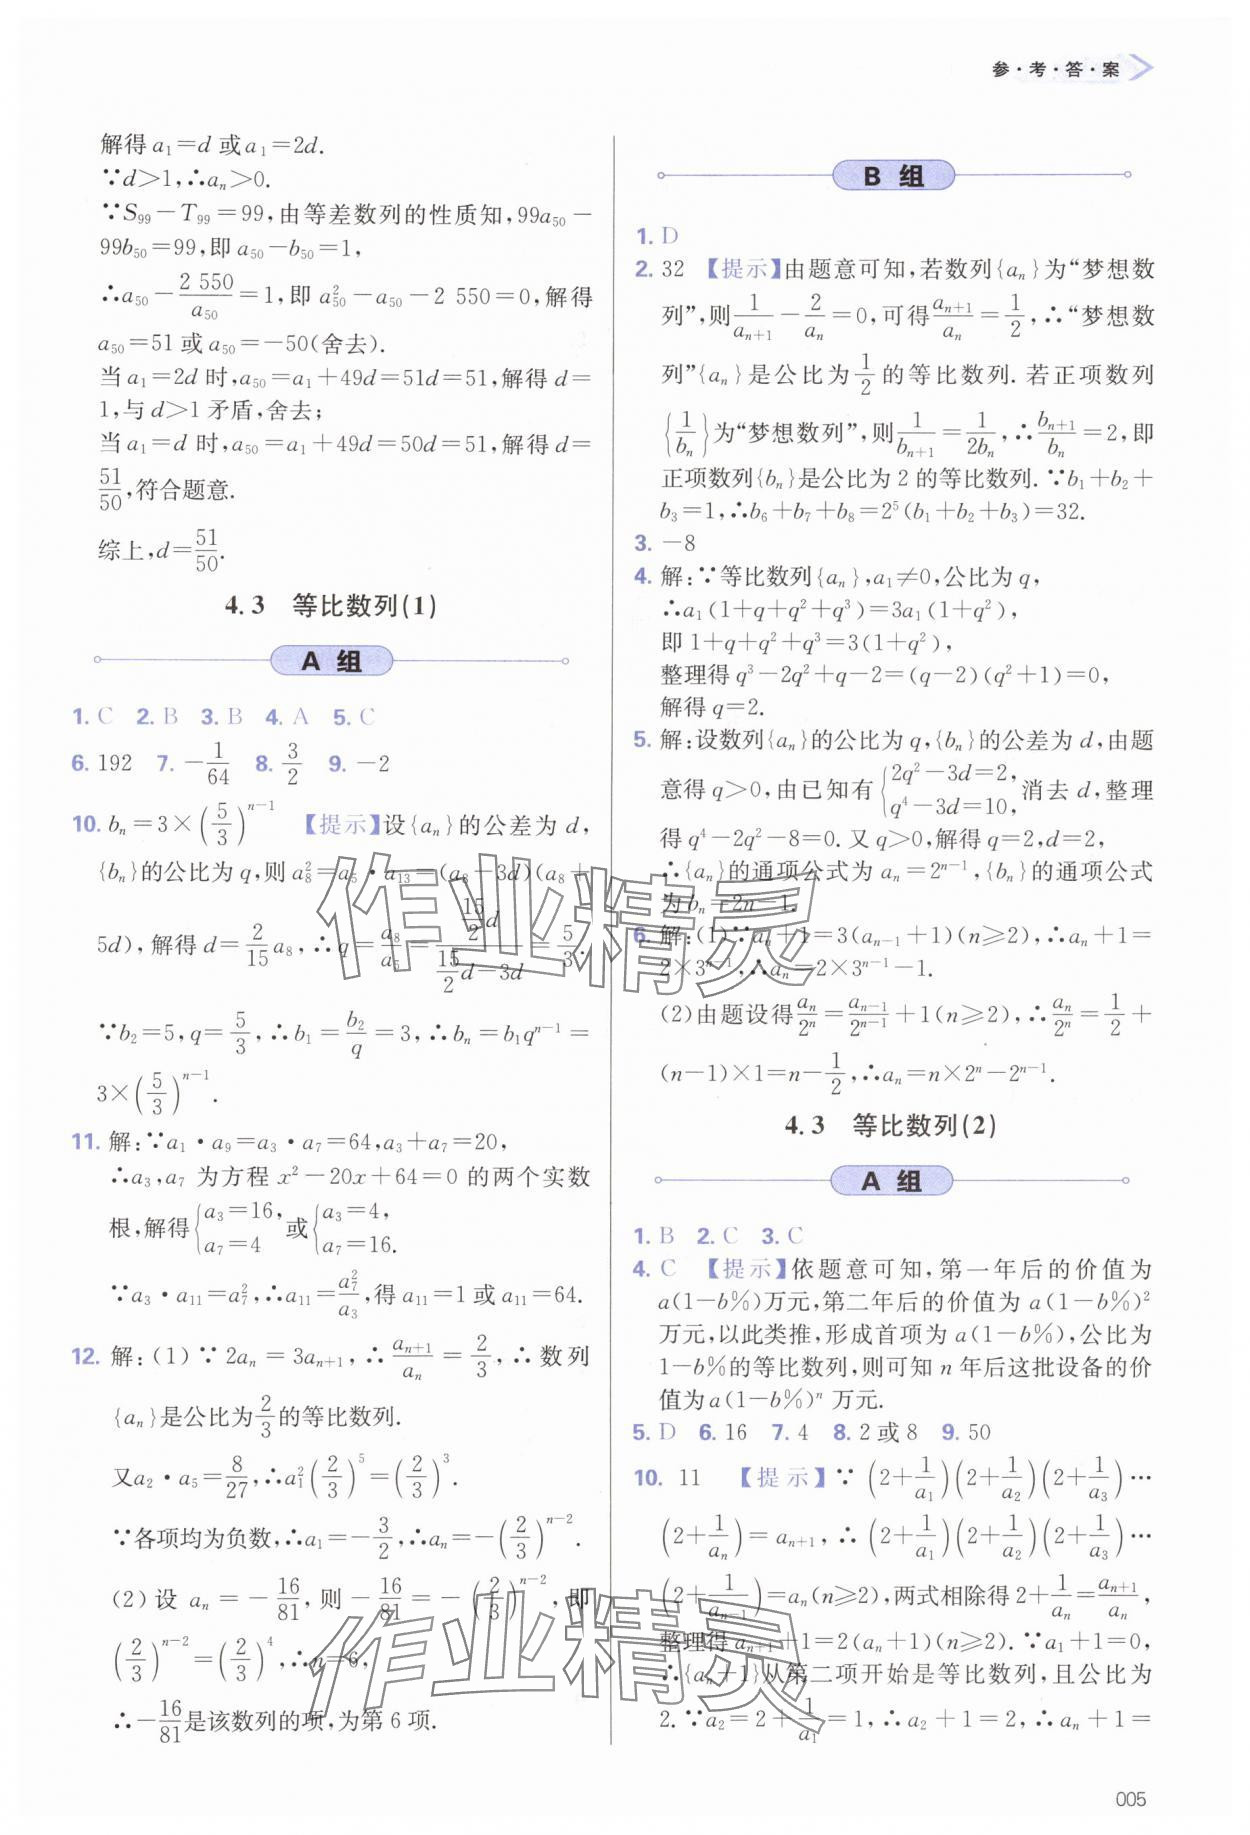 参·考·答·案
解得 a₁=d 或 a₁=2d.
∵d>1,∴aₙ>0.
∵S₉₉-T₉₉=99,由等差数列的性质知,99a₅₀-
99b₅₀=99,即 a₅₀-b₅₀=1,
∴a₅₀-2 550/a₅₀=1,即 a₅₀²-a₅₀-2 550=0,解得
a₅₀=51 或 a₅₀=-50(舍去).
当 a₁=2d 时,a₅₀=a₁+49d=51d=51,解得 d=
1,与 d>1 矛盾,舍去;
当 a₁=d 时,a₅₀=a₁+49d=50d=51,解得 d=
51/50,符合题意.
综上,d=51/50.
4.3 等比数列(1)
A 组
1. C 2. B 3. B 4. A 5. C
6. 192 7. -1/64 8. 3/2 9. -2
10. bₙ=3×(5/3)ⁿ⁻¹ 【提示】设{aₙ}的公差为 d,
{bₙ}的公比为 q,则 a₈²=a₅·a₁₃=(a₈-3d)(a₈+
5d),解得 d=2/15 a₈,∴q=a₈/a₅=(15/2 d)/(15/2 d-3d)=5/3.
∵b₂=5,q=5/3,∴b₁=b₂/q=3,∴bₙ=b₁qⁿ⁻¹=
3×(5/3)ⁿ⁻¹.
11. 解:∵a₁·a₉=a₃·a₇=64,a₃+a₇=20,
∴a₃,a₇ 为方程 x²-20x+64=0 的两个实数
根,解得{a₃=16, a₇=4 或{a₃=4, a₇=16.
∵a₃·a₁₁=a₇²,∴a₁₁=a₇²/a₃,得 a₁₁=1 或 a₁₁=64.
12. 解:(1)∵2aₙ=3aₙ₊₁,∴aₙ₊₁/aₙ=2/3,∴数列
{aₙ}是公比为2/3的等比数列.
又a₂·a₅=8/27,∴a₁²(2/3)⁵=(2/3)³.
∵各项均为负数,∴a₁=-3/2,∴aₙ=-(2/3)ⁿ⁻².
(2)设 aₙ=-16/81,则-16/81=-(2/3)ⁿ⁻²,即
(2/3)ⁿ⁻²=(2/3)⁴,∴n=6,
∴-16/81是该数列的项,为第 6 项.
B 组
1. D
2. 32 【提示】由题意可知,若数列{aₙ}为“梦想数
列”,则1/aₙ₊₁-2/aₙ=0,可得aₙ₊₁/aₙ=1/2,∴“梦想数
列”{aₙ}是公比为1/2的等比数列.若正项数列
{1/bₙ}为“梦想数列”,则1/bₙ₊₁=1/2bₙ,∴bₙ₊₁/bₙ=2,即
正项数列{bₙ}是公比为 2 的等比数列.∵b₁+b₂+
b₃=1,∴b₆+b₇+b₈=2⁵(b₁+b₂+b₃)=32.
3. -8
4. 解:∵等比数列{aₙ},a₁≠0,公比为 q,
∴a₁(1+q+q²+q³)=3a₁(1+q²),
即 1+q+q²+q³=3(1+q²),
整理得 q³-2q²+q-2=(q-2)(q²+1)=0,
解得 q=2.
5. 解:设数列{aₙ}的公比为 q,{bₙ}的公差为 d,由题
意得 q>0,由已知有{2q²-3d=2, q⁴-3d=10,消去 d,整理
得 q⁴-2q²-8=0.又 q>0,解得 q=2,d=2,
∴{aₙ}的通项公式为 aₙ=2ⁿ⁻¹,{bₙ}的通项公式
为 bₙ=2n-1.
6. 解:(1)∵aₙ+1=3(aₙ₋₁+1)(n≥2),∴aₙ+1=
2×3ⁿ⁻¹,∴aₙ=2×3ⁿ⁻¹-1.
(2)由题设得aₙ/2ⁿ=aₙ₋₁/2ⁿ⁻¹+1(n≥2),∴aₙ/2ⁿ=1/2+
(n-1)×1=n-1/2,∴aₙ=n×2ⁿ-2ⁿ⁻¹.
4.3 等比数列(2)
A 组
1. B 2. C 3. C
4. C 【提示】依题意可知,第一年后的价值为
a(1-b%)万元,第二年后的价值为 a(1-b%)²
万元,以此类推,形成首项为 a(1-b%),公比为
1-b%的等比数列,则可知 n 年后这批设备的价
值为 a(1-b%)ⁿ 万元.
5. D 6. 16 7. 4 8. 2 或 8 9. 50
10. 11 【提示】∵(2+1/a₁)(2+1/a₂)(2+1/a₃)…
(2+1/aₙ)=aₙ₊₁,∴(2+1/a₁)(2+1/a₂)(2+1/a₃)…
(2+1/aₙ₋₁)=aₙ(n≥2),两式相除得 2+1/aₙ=aₙ₊₁/aₙ,
整理得 aₙ₊₁+1=2(aₙ+1)(n≥2).∵a₁+1=0,
∴{aₙ+1}从第二项开始是等比数列,且公比为
2.∵a₂=2+1/a₁=1,∴a₂+1=2,∴aₙ+1=
005
作业精灵
作业精灵